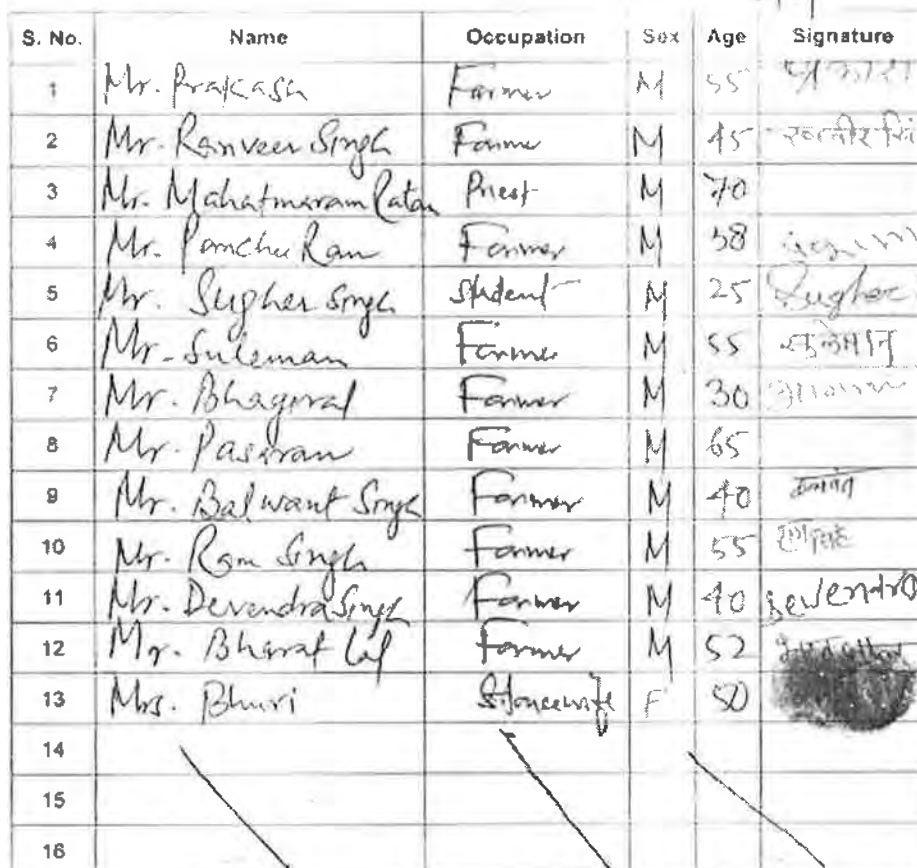 S. No. Name Occupation Sex Age Signature
1 Mr. Prakash Farmer M 55 प्रकाश
2 Mr. Ranveer Singh Farmer M 45 रनवीर सिं
3 Mr. Mahatmaram Ratan Priest M 70
4 Mr. Panchu Ram Farmer M 58
5 Mr. Sugher Singh Student M 25 Sugher
6 Mr. Suleman Farmer M 55 सुलेमान
7 Mr. Bhagwal Farmer M 30
8 Mr. Pasaram Farmer M 65
9 Mr. Balwant Singh Farmer M 40
10 Mr. Ram Singh Farmer M 55
11 Mr. Devendra Singh Farmer M 40 Devendra
12 Mr. Bharat Lal Farmer M 52
13 Mrs. Bhuri Housewife F 50
14
15
16